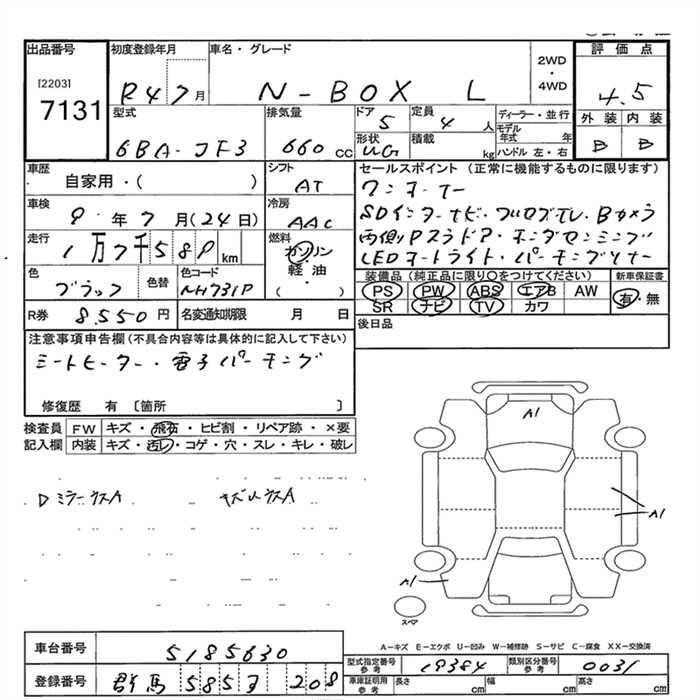 出品番号
[2203]
7131
初度登録年月
R4 7 月
車名・グレード
N-BOX L
2WD
・
4WD
評価点
4.5
外装 内装
B B
型式
6BA-JF3
排気量
660 cc
ドア
5
定員
4 人
形状
積載
kg
ディーラー・並行
モデル年式 年
ハンドル 左・右
車歴
自家用・( )
シフト
AT
車検
9 年 7 月(24日)
冷房
AAC
走行
1万7千589 km
燃料
ガソリン
軽・油
( ・ )
色
ブラック
色替
色コード
NH731P
R券
8,550 円
名変通知期限
月 日
セールスポイント (正常に機能するものに限ります)
ワンオーナー
SDインターナビ・フルセグTV・Bカメラ
両側Pスラドア・ホンダセンシング
LEDオートライト・パーキングソナー
装備品(純正品に限り○をつけてください)
PS PW ABS エアB AW
SR ナビ TV カワ
新車保証書
有・無
後日品
注意事項申告欄(不具合内容等は具体的に記入して下さい)
シートヒーター・電子パーキング
修復歴 有 〔箇所 〕
検査員
記入欄
FW キズ・飛石・ヒビ割・リペア跡・×要
内装 キズ・汚レ・コゲ・穴・スレ・キレ・破レ
DミラーウスA
キズ小ウスA
A1
A1
A1
スペア
A-キズ E-エクボ U-凹み W-補修跡 S-サビ C-腐食 XX-交換済
車台番号
5185630
登録番号
群馬 585 208
型式指定番号
参考
19384
類別区分番号
参考
0031
車庫証明用
参考
長さ cm 幅 cm 高さ cm